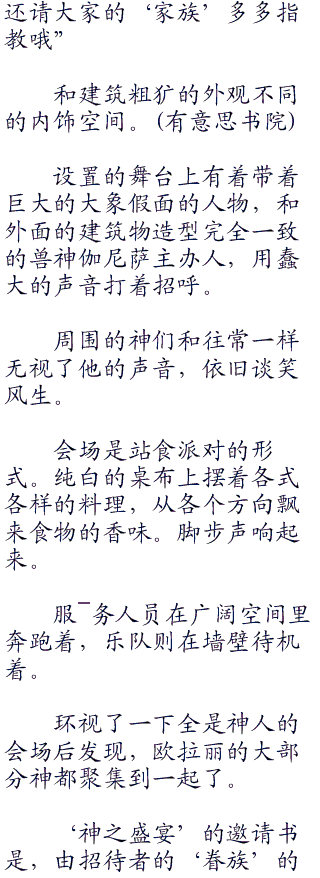 还请大家的‘家族’多多指
教哦”
和建筑粗犷的外观不同
的内饰空间。(有意思书院)
设置的舞台上有着带着
巨大的大象假面的人物，和
外面的建筑物造型完全一致
的兽神伽尼萨主办人，用蠢
大的声音打着招呼。
周围的神们和往常一样
无视了他的声音，依旧谈笑
风生。
会场是站食派对的形
式。纯白的桌布上摆着各式
各样的料理，从各个方向飘
来食物的香味。脚步声响起
来。
服¯务人员在广阔空间里
奔跑着，乐队则在墙壁待机
着。
环视了一下全是神人的
会场后发现，欧拉丽的大部
分神都聚集到一起了。
‘神之盛宴’的邀请书
是，由招待者的‘眷族’的